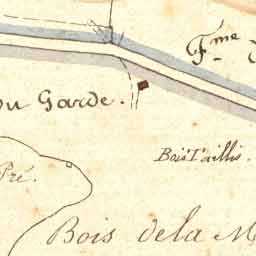 Fme
ou Garde.
Bois Taillis.
Pré.
Bois dela M